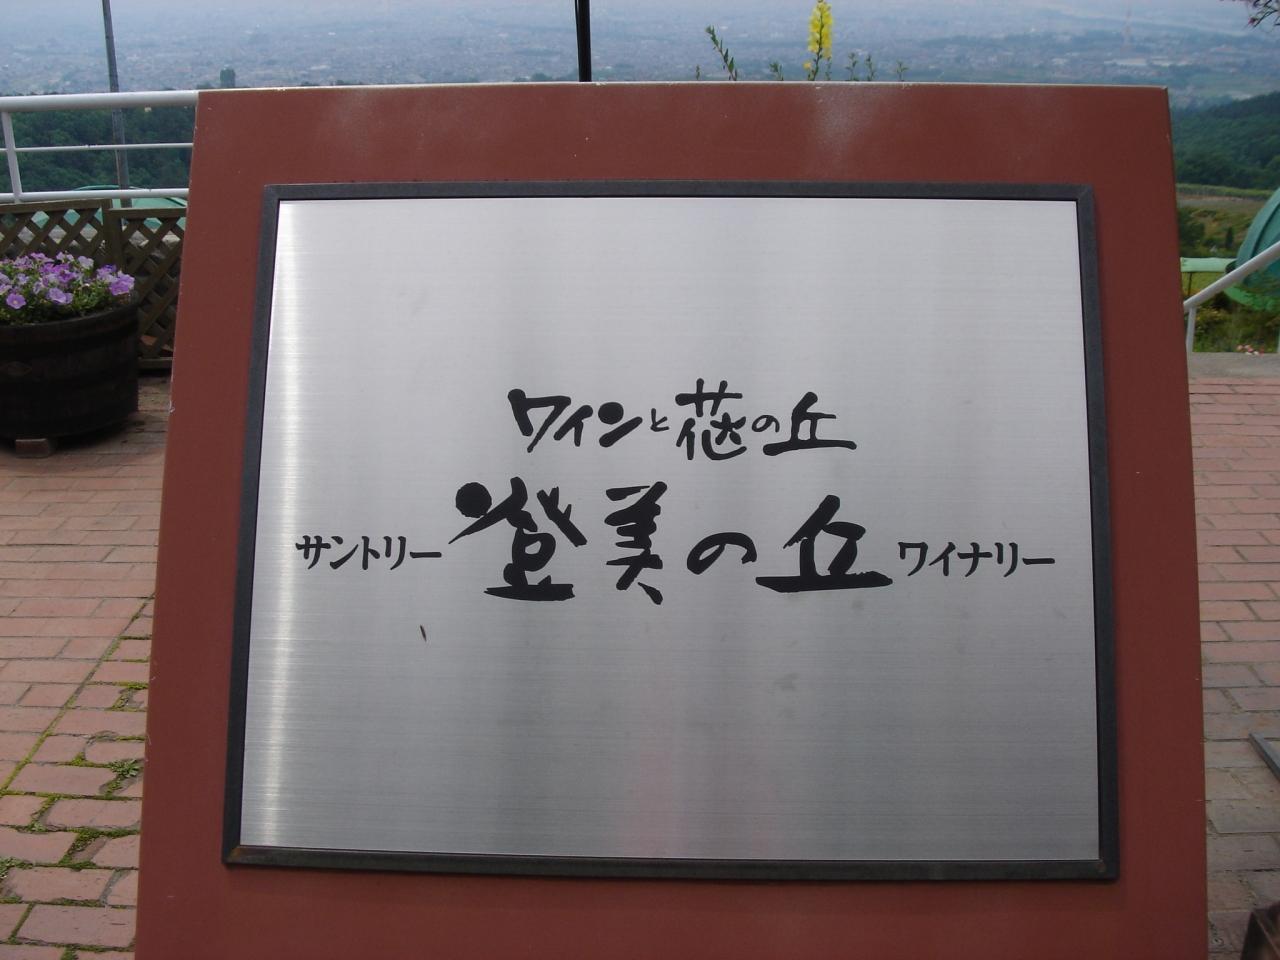 ワインと花の丘
サントリー登美の丘ワイナリー